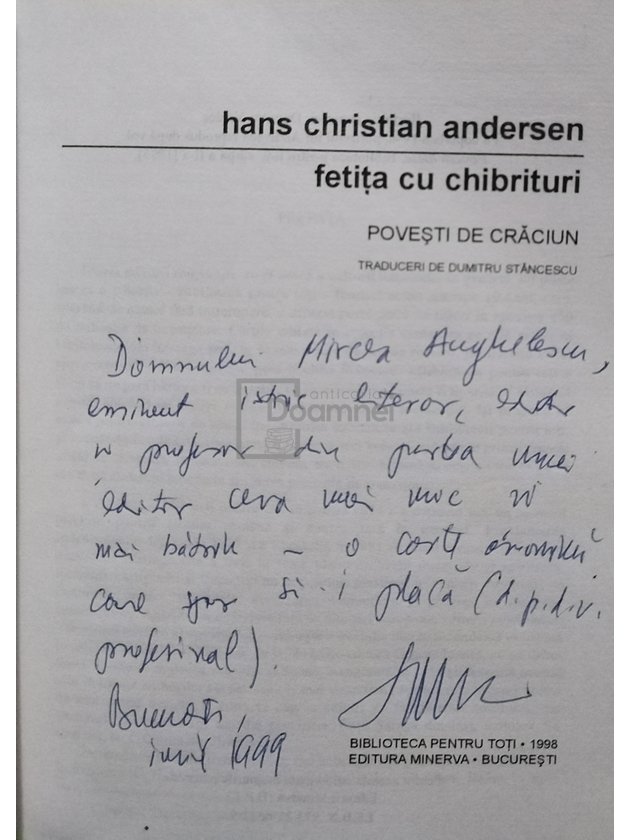 hans christian andersen
fetița cu chibrituri
POVEȘTI DE CRĂCIUN
TRADUCERI DE DUMITRU STĂNCESCU
Domnului Mircea Anghelescu,
eminent istoric literar, editor
și profesor din partea unui
editor ceva mai mic și
mai bătrîn – o carte
care sper să-i placă (d.p.d.v.
profesional).
București,
1999
anticariat
Doamnei
BIBLIOTECA PENTRU TOȚI • 1998
EDITURA MINERVA • BUCUREȘTI